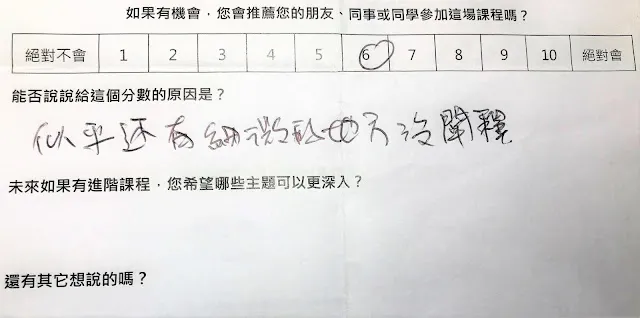 如果有機會，您會推薦您的朋友、同事或同學參加這場課程嗎？
絕對不會 1 2 3 4 5 6 7 8 9 10 絕對會
能否說說給這個分數的原因是？
似乎還有細微點地方沒闡釋
未來如果有進階課程，您希望哪些主題可以更深入？
還有其它想說的嗎？